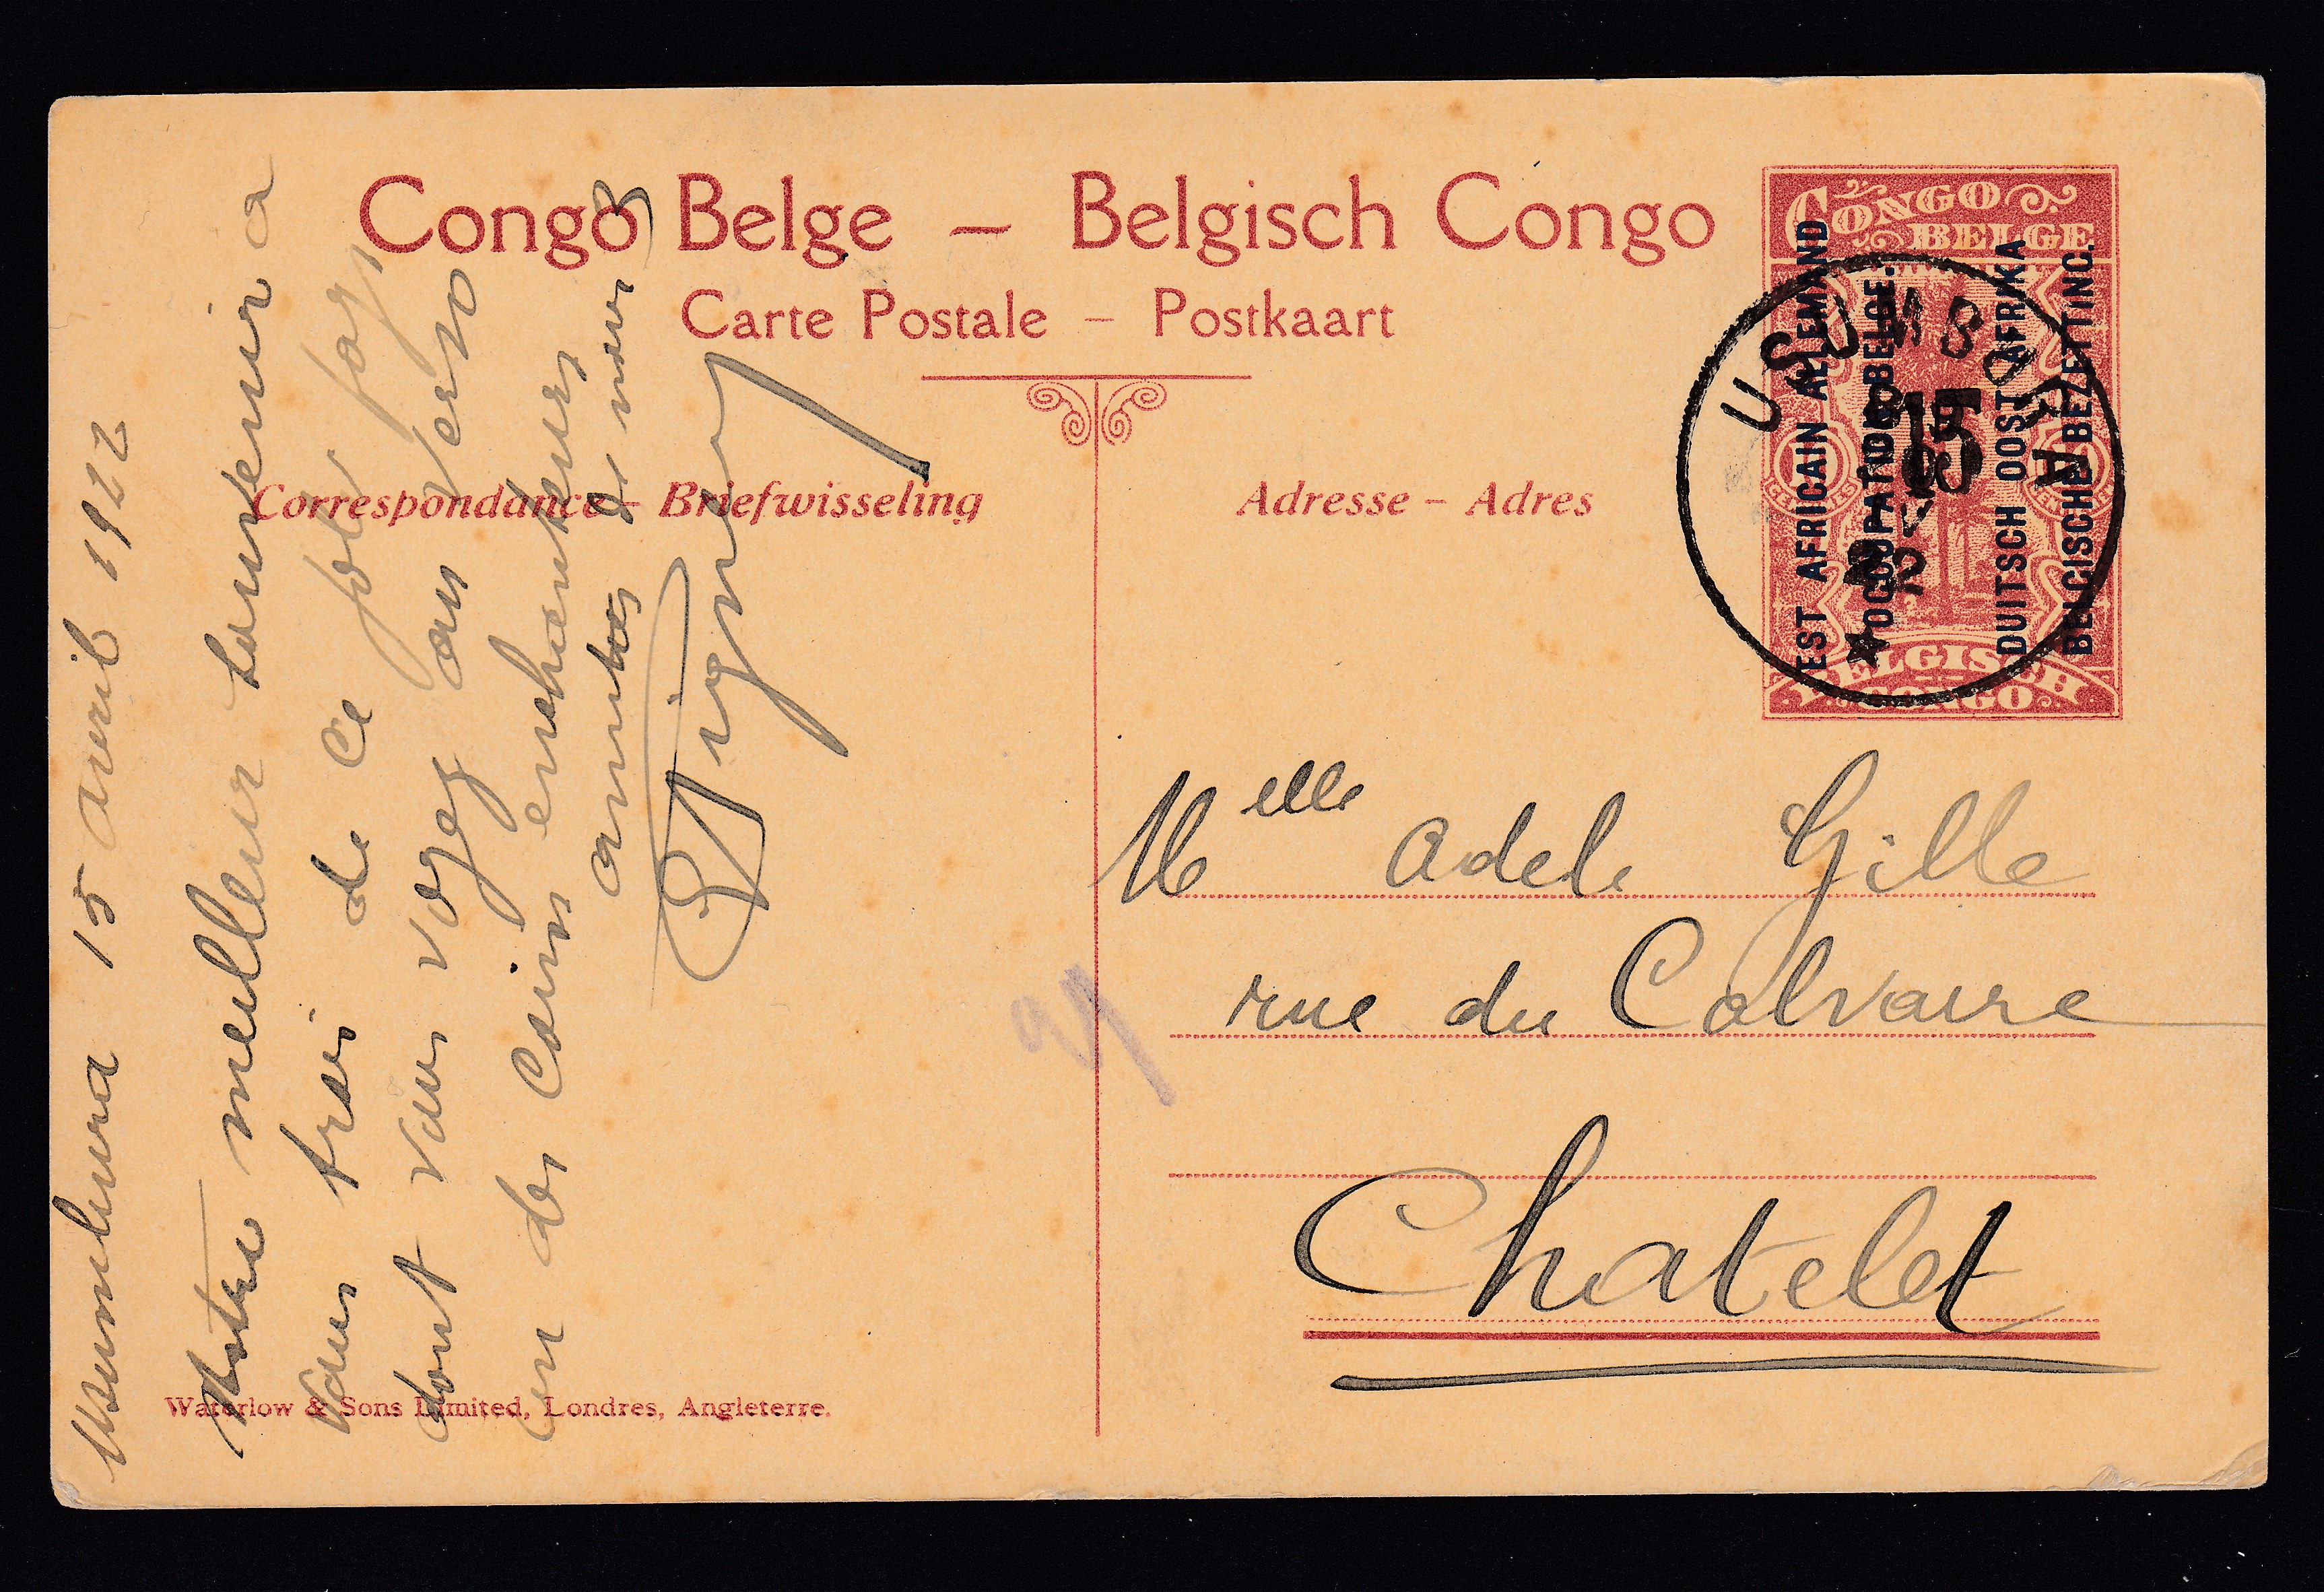 Congo Belge – Belgisch Congo
Carte Postale – Postkaart
Correspondance – Briefwisseling
Adresse – Adres
CONGO
BELGE
BELGISCH
CONGO
EST AFRICAIN ALLEMAND
OCCUPATION BELGE.
DUITSCH OOST AFRIKA
BELGISCHE BEZETTING.
15
USUMBURA
Usumbura 15 avril 1922
Notre meilleur souvenir a
vous trois de ce joli pays
dont vous voyez au verso
un des coins enchanteurs
amities de nous 3
Melle Adele Gille
rue du Calvaire
Chatelet
Waterlow & Sons Limited, Londres, Angleterre.